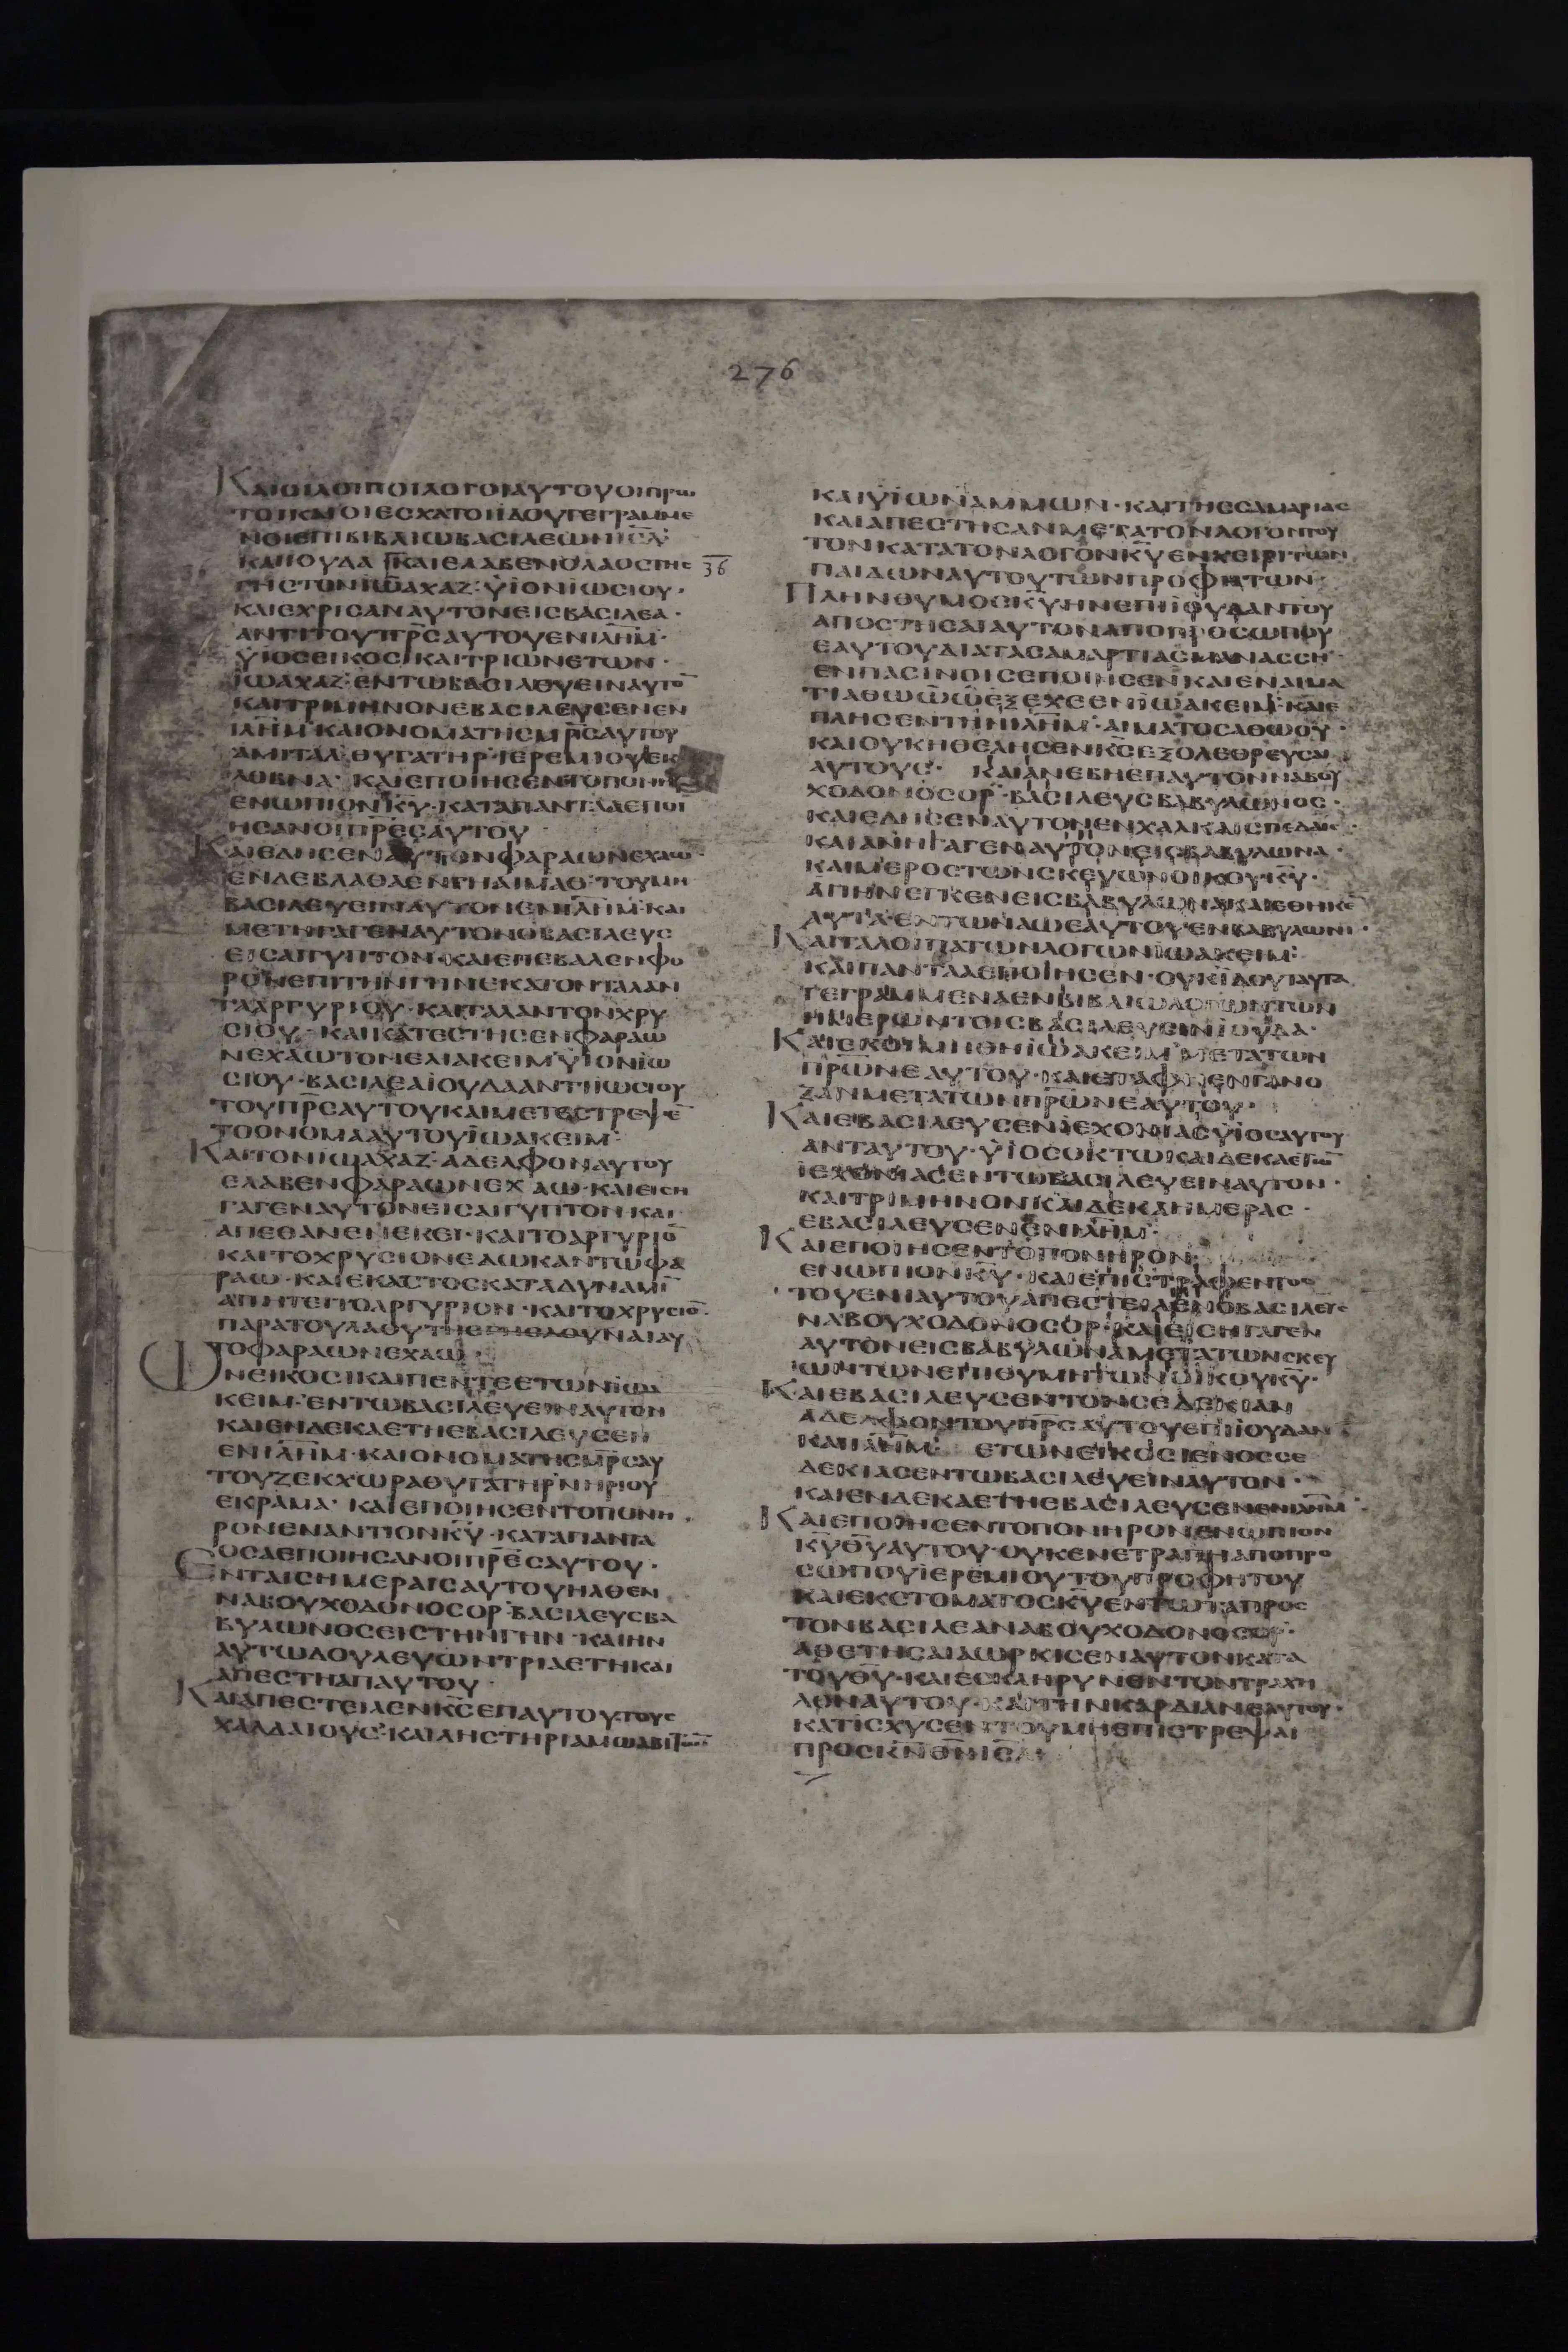 276
ΚΑΙΟΙΛΟΙΠΟΙΛΟΓΟΙΑΥΤΟΥΟΙΠΡΩ
ΤΟΙΚΑΙΟΙΕΣΧΑΤΟΙΙΔΟΥΓΕΓΡΑΜΜΕ
ΝΟΙΕΠΙΒΙΒΛΙΩΒΑΣΙΛΕΩΝΙΣ̅Λ̅
ΚΑΙΙΟΥΔΑ ΚΑΙΕΛΑΒΕΝΟΛΑΟΣΤΗΣ 36
ΓΗΣΤΟΝΙΩΑΧΑΖ·ΥΙΟΝΙΩΣΙΟΥ·
ΚΑΙΕΧΡΙΣΑΝΑΥΤΟΝΕΙΣΒΑΣΙΛΕΑ·
ΑΝΤΙΤΟΥΠ̅Ρ̅Σ̅ΑΥΤΟΥΕΝΙΛ̅Η̅Μ̅·
ΥΙΟΣΕΙΚΟΣΙΚΑΙΤΡΙΩΝΕΤΩΝ·
ΙΩΑΧΑΖ·ΕΝΤΩΒΑΣΙΛΕΥΕΙΝΑΥΤΟ̅
ΚΑΙΤΡΙΜΗΝΟΝΕΒΑΣΙΛΕΥΣΕΝΕΝ
ΙΛ̅Η̅Μ̅ΚΑΙΟΝΟΜΑΤΗΣΜ̅Ρ̅Σ̅ΑΥΤΟΥ
ΑΜΙΤΑΛ·ΘΥΓΑΤΗΡ·ΙΕΡΕΜΙΟΥΕΚ
ΛΟΒΝΑ· ΚΑΙΕΠΟΙΗΣΕΝΤΟΠΟΝΗ
ΕΝΩΠΙΟΝΚ̅Υ̅·ΚΑΤΑΠΑΝΤΑΑΕΠΟΙ
ΗΣΑΝΟΙΠ̅Ρ̅Ε̅Σ̅ΑΥΤΟΥ
ΚΑΙΕΔΗΣΕΝΑΥΤΟΝΦΑΡΑΩΝΕΧΑΩ·
ΕΝΔΕΒΛΑΘΑΕΝΓΗΑΙΜΑΘ·ΤΟΥΜΗ
ΒΑΣΙΛΕΥΕΙΝΑΥΤΟΝΕΝΙΛ̅Η̅Μ̅·ΚΑΙ
ΜΕΤΗΓΑΓΕΝΑΥΤΟΝΟΒΑΣΙΛΕΥΣ
ΕΙΣΑΙΓΥΠΤΟΝ·ΚΑΙΕΠΕΒΑΛΕΝΦΟ
ΡΟΝΕΠΙΤΗΝΓΗΝΕΚΑΤΟΝΤΑΛΑΝ
ΤΑΑΡΓΥΡΙΟΥ·ΚΑΙΤΑΛΑΝΤΟΝΧΡΥ
ΣΙΟΥ· ΚΑΙΚΑΤΕΣΤΗΣΕΝΦΑΡΑΩ
ΝΕΧΑΩΤΟΝΕΛΙΑΚΕΙΜΥΙΟΝΙΩ
ΣΙΟΥ·ΒΑΣΙΛΕΑΙΟΥΔΑΑΝΤΙΙΩΣΙΟΥ
ΤΟΥΠ̅Ρ̅Σ̅ΑΥΤΟΥΚΑΙΜΕΤΕΣΤΡΕΨΕ̅
ΤΟΟΝΟΜΑΑΥΤΟΥΙΩΑΚΕΙΜ·
ΚΑΙΤΟΝΙΩΑΧΑΖ·ΑΔΕΛΦΟΝΑΥΤΟΥ
ΕΛΑΒΕΝΦΑΡΑΩΝΕΧΑΩ·ΚΑΙΕΙΣΗ
ΓΑΓΕΝΑΥΤΟΝΕΙΣΑΙΓΥΠΤΟΝ·ΚΑΙ
ΑΠΕΘΑΝΕΝΕΚΕΙ·ΚΑΙΤΟΑΡΓΥΡΙΟ̅
ΚΑΙΤΟΧΡΥΣΙΟΝΕΔΩΚΑΝΤΩΦΑ
ΡΑΩ·ΚΑΙΕΚΑΣΤΟΣΚΑΤΑΔΥΝΑΜΙ̅
ΑΠΗΤΕΙΤΟΑΡΓΥΡΙΟΝ·ΚΑΙΤΟΧΡΥΣΙΟ̅
ΠΑΡΑΤΟΥΛΑΟΥΤΗΣΓΗΣΔΟΥΝΑΙΑΥ
ΤΟΦΑΡΑΩΝΕΧΑΩ·
ΩΝΕΙΚΟΣΙΚΑΙΠΕΝΤΕΕΤΩΝΙΩΑ
ΚΕΙΜ·ΕΝΤΩΒΑΣΙΛΕΥΕΙΝΑΥΤΟΝ
ΚΑΙΕΝΔΕΚΑΕΤΗΕΒΑΣΙΛΕΥΣΕΝ
ΕΝΙΛ̅Η̅Μ̅·ΚΑΙΟΝΟΜΑΤΗΣΜ̅Ρ̅Σ̅ΑΥ
ΤΟΥΖΕΚΧΩΡΑΘΥΓΑΤΗΡΝΗΡΙΟΥ
ΕΚΡΑΜΑ· ΚΑΙΕΠΟΙΗΣΕΝΤΟΠΟΝΗ
ΡΟΝΕΝΑΝΤΙΟΝΚ̅Υ̅·ΚΑΤΑΠΑΝΤΑ
ΟΣΑΕΠΟΙΗΣΑΝΟΙΠ̅Ρ̅Ε̅Σ̅ΑΥΤΟΥ·
ΕΝΤΑΙΣΗΜΕΡΑΙΣΑΥΤΟΥΗΛΘΕΝ
ΝΑΒΟΥΧΟΔΟΝΟΣΟΡ·ΒΑΣΙΛΕΥΣΒΑ
ΒΥΛΩΝΟΣΕΙΣΤΗΝΓΗΝ·ΚΑΙΗΝ
ΑΥΤΩΔΟΥΛΕΥΩΝΤΡΙΑΕΤΗΚΑΙ
ΑΠΕΣΤΗΑΠΑΥΤΟΥ·
ΚΑΙΑΠΕΣΤΕΙΛΕΝΚ̅Σ̅ΕΠΑΥΤΟΥΤΟΥΣ
ΧΑΛΔΑΙΟΥΣ·ΚΑΙΛΗΣΤΗΡΙΑΜΩΑΒΙΤΩΝ
ΚΑΙΥΙΩΝΑΜΜΩΝ·ΚΑΙΤΗΣΣΑΜΑΡΙΑΣ
ΚΑΙΑΠΕΣΤΗΣΑΝΜΕΤΑΤΟΝΛΟΓΟΝΤΟΥ
ΤΟΝΚΑΤΑΤΟΝΛΟΓΟΝΚ̅Υ̅ΕΝΧΕΙΡΙΤΩΝ
ΠΑΙΔΩΝΑΥΤΟΥΤΩΝΠΡΟΦΗΤΩΝ·
ΠΛΗΝΘΥΜΟΣΚ̅Υ̅ΗΝΕΠΙΙΟΥΔΑΝΤΟΥ
ΑΠΟΣΤΗΣΑΙΑΥΤΟΝΑΠΟΠΡΟΣΩΠΟΥ
ΕΑΥΤΟΥΔΙΑΤΑΣΑΜΑΡΤΙΑΣΜΑΝΑΣΣΗ·
ΕΝΠΑΣΙΝΟΙΣΕΠΟΙΗΣΕΝΚΑΙΕΝΑΙΜΑ
ΤΙΑΘΩΩΩΕΞΕΧΕΕΝΙΩΑΚΕΙΜ·ΚΑΙΕ
ΠΛΗΣΕΝΤΗΝΙΛ̅Η̅Μ̅·ΑΙΜΑΤΟΣΑΘΩΟΥ·
ΚΑΙΟΥΚΗΘΕΛΗΣΕΝΚ̅Σ̅ΕΞΟΛΕΘΡΕΥΣΑΙ
ΑΥΤΟΥΣ· ΚΑΙΑΝΕΒΗΕΠΑΥΤΟΝΝΑΒΟΥ
ΧΟΔΟΝΟΣΟΡ·ΒΑΣΙΛΕΥΣΒΑΒΥΛΩΝΟΣ·
ΚΑΙΕΔΗΣΕΝΑΥΤΟΝΕΝΧΑΛΚΑΙΣΠΕΔΑΙΣ·
ΚΑΙΑΠΗΓΑΓΕΝΑΥΤΟΝΕΙΣΒΑΒΥΛΩΝΑ·
ΚΑΙΜΕΡΟΣΤΩΝΣΚΕΥΩΝΟΙΚΟΥΚ̅Υ̅·
ΑΠΗΝΕΓΚΕΝΕΙΣΒΑΒΥΛΩΝΑΚΑΙΕΘΗΚΕ̅
ΑΥΤΑΕΝΤΩΝΑΩΕΑΥΤΟΥΕΝΒΑΒΥΛΩΝΙ·
ΚΑΙΤΑΛΟΙΠΑΤΩΝΛΟΓΩΝΙΩΑΚΕΙΜ·
ΚΑΙΠΑΝΤΑΑΕΠΟΙΗΣΕΝ·ΟΥΚΙΔΟΥΤΑΥΤΑ
ΓΕΓΡΑΜΜΕΝΑΕΝΒΙΒΛΙΩΛΟΓΩΝΤΩΝ
ΗΜΕΡΩΝΤΟΙΣΒΑΣΙΛΕΥΣΙΝΙΟΥΔΑ·
ΚΑΙΕΚΟΙΜΗΘΗΙΩΑΚΕΙΜ·ΜΕΤΑΤΩΝ
Π̅Ρ̅Ω̅Ν̅ΕΑΥΤΟΥ·ΚΑΙΕΤΑΦΗΕΝΓΑΝΟ
ΖΑΝΜΕΤΑΤΩΝΠ̅Ρ̅Ω̅Ν̅ΕΑΥΤΟΥ·
ΚΑΙΕΒΑΣΙΛΕΥΣΕΝΙΕΧΟΝΙΑΣΥΙΟΣΑΥΤΟΥ
ΑΝΤΑΥΤΟΥ·ΥΙΟΣΟΚΤΩΚΑΙΔΕΚΑΕΤΩΝ
ΙΕΧΟΝΙΑΣΕΝΤΩΒΑΣΙΛΕΥΕΙΝΑΥΤΟΝ·
ΚΑΙΤΡΙΜΗΝΟΝΚΑΙΔΕΚΑΗΜΕΡΑΣ·
ΕΒΑΣΙΛΕΥΣΕΝΕΝΙΛ̅Η̅Μ̅·
ΚΑΙΕΠΟΙΗΣΕΝΤΟΠΟΝΗΡΟΝ
ΕΝΩΠΙΟΝΚ̅Υ̅·ΚΑΙΕΠΙΣΤΡΑΦΕΝΤΟΣ
ΤΟΥΕΝΙΑΥΤΟΥΑΠΕΣΤΕΙΛΕΝΟΒΑΣΙΛΕΥΣ
ΝΑΒΟΥΧΟΔΟΝΟΣΟΡ·ΚΑΙΕΙΣΗΓΑΓΕΝ
ΑΥΤΟΝΕΙΣΒΑΒΥΛΩΝΑΜΕΤΑΤΩΝΣΚΕΥ
ΩΝΤΩΝΕΠΙΘΥΜΗΤΩΝΟΙΚΟΥΚ̅Υ̅·
ΚΑΙΕΒΑΣΙΛΕΥΣΕΝΤΟΝΣΕΔΕΚΙΑΝ
ΑΔΕΛΦΟΝΤΟΥΠ̅Ρ̅Σ̅ΑΥΤΟΥΕΠΙΙΟΥΔΑΝ
ΚΑΙΙΛ̅Η̅Μ̅· ΕΤΩΝΕΙΚΟΣΙΕΝΟΣΣΕ
ΔΕΚΙΑΣΕΝΤΩΒΑΣΙΛΕΥΕΙΝΑΥΤΟΝ·
ΚΑΙΕΝΔΕΚΑΕΤΗΕΒΑΣΙΛΕΥΣΕΝΕΝΙΛ̅Η̅Μ̅·
ΚΑΙΕΠΟΙΗΣΕΝΤΟΠΟΝΗΡΟΝΕΝΩΠΙΟΝ
Κ̅Υ̅Θ̅Υ̅ΑΥΤΟΥ·ΟΥΚΕΝΕΤΡΑΠΗΑΠΟΠΡΟ
ΣΩΠΟΥΙΕΡΕΜΙΟΥΤΟΥΠΡΟΦΗΤΟΥ
ΚΑΙΕΚΣΤΟΜΑΤΟΣΚ̅Υ̅ΕΝΤΩΤΑΠΡΟΣ
ΤΟΝΒΑΣΙΛΕΑΝΑΒΟΥΧΟΔΟΝΟΣΟΡ·
ΑΘΕΤΗΣΑΙΑΩΡΚΙΣΕΝΑΥΤΟΝΚΑΤΑ
ΤΟΥΘ̅Υ̅·ΚΑΙΕΣΚΛΗΡΥΝΕΝΤΟΝΤΡΑΧΗ
ΛΟΝΑΥΤΟΥ·ΚΑΙΤΗΝΚΑΡΔΙΑΝΕΑΥΤΟΥ·
ΚΑΤΙΣΧΥΣΕΝΤΟΥΜΗΕΠΙΣΤΡΕΨΑΙ
ΠΡΟΣΚ̅Ν̅Θ̅Ν̅ΙΣ̅Λ̅·